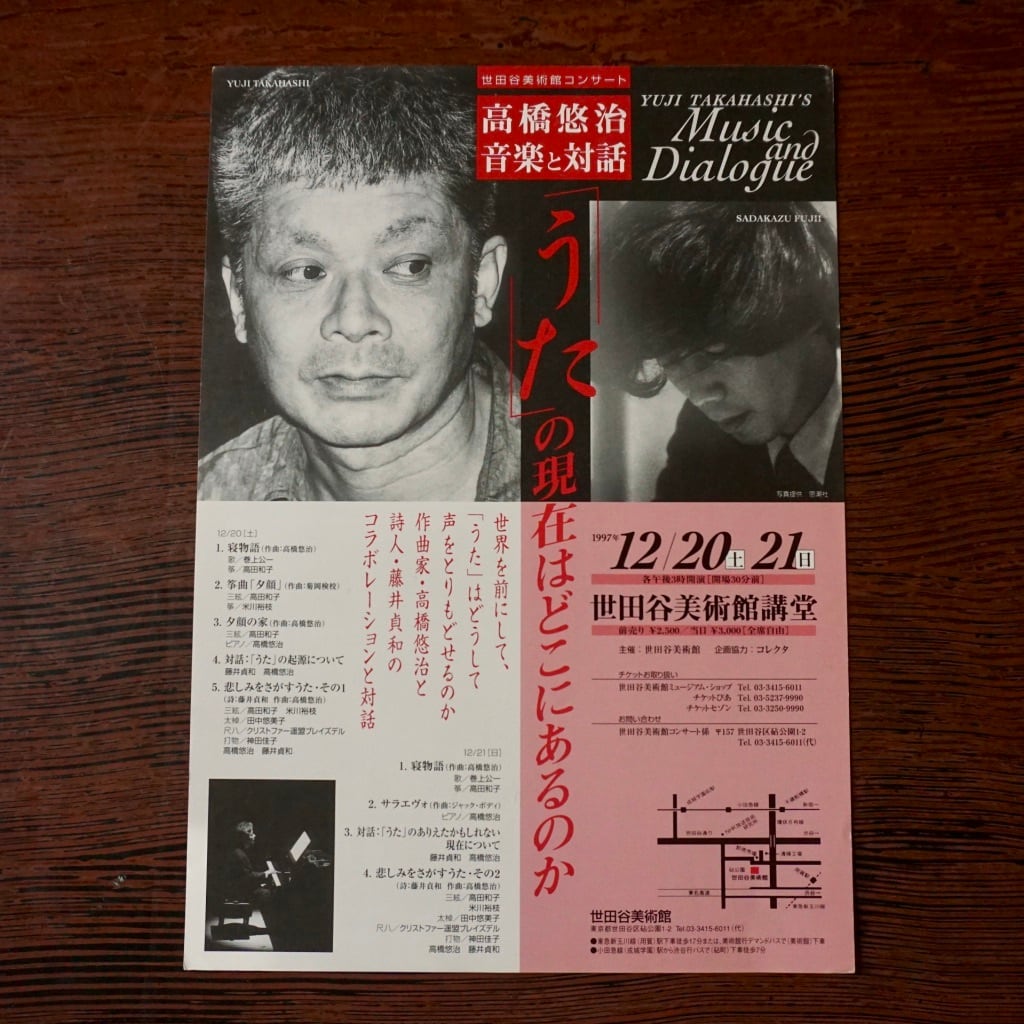 YUJI TAKAHASHI
世田谷美術館コンサート
高橋悠治
音楽と対話
YUJI TAKAHASHI'S
Music
and
Dialogue
SADAKAZU FUJII
写真提供 思潮社
「うた」の現在はどこにあるのか
世界を前にして、
「うた」はどうして
声をとりもどせるのか
作曲家・高橋悠治と
詩人・藤井貞和の
コラボレーションと対話
12/20[土]
1. 寝物語(作曲:高橋悠治)
歌/巻上公一
箏/高田和子
2. 箏曲「夕顔」(作曲:菊岡検校)
三絃/高田和子
箏/米川裕枝
3. 夕顔の家(作曲:高橋悠治)
三絃/高田和子
ピアノ/高橋悠治
4. 対話:「うた」の起源について
藤井貞和 高橋悠治
5. 悲しみをさがすうた・その1
(詩:藤井貞和 作曲:高橋悠治)
三絃/高田和子 米川裕枝
太棹/田中悠美子
尺八/クリストファー遥盟ブレイズデル
打物/神田佳子
高橋悠治 藤井貞和
12/21[日]
1. 寝物語(作曲:高橋悠治)
歌/巻上公一
箏/高田和子
2. サラエヴォ(作曲:ジャック・ボディ)
ピアノ/高橋悠治
3. 対話:「うた」のありえたかもしれない
現在について
藤井貞和 高橋悠治
4. 悲しみをさがすうた・その2
(詩:藤井貞和 作曲:高橋悠治)
三絃/高田和子
米川裕枝
太棹/田中悠美子
尺八/クリストファー遥盟ブレイズデル
打物/神田佳子
高橋悠治 藤井貞和
1997年12/20土21日
各午後3時開演[開場30分前]
世田谷美術館講堂
前売り ¥2,500/当日 ¥3,000[全席自由]
主催:世田谷美術館 企画協力:コレクタ
チケットお取り扱い
世田谷美術館ミュージアム・ショップ Tel. 03-3415-6011
チケットぴあ Tel. 03-5237-9990
チケットセゾン Tel. 03-3250-9990
お問い合わせ
世田谷美術館コンサート係 〒157 世田谷区砧公園1-2
Tel. 03-3415-6011(代)
成城学園前駅
小田急線
千歳船橋駅
新宿→
世田谷通り
環状8号線
渋谷→
清掃工場
砧公園
世田谷美術館
東名高速
用賀駅
渋谷→
東急新玉川線
世田谷美術館
東京都世田谷区砧公園1-2 Tel.03-3415-6011(代)
●東急新玉川線(用賀)駅下車徒歩17分または、美術館行デマンドバスで(美術館)下車
●小田急線(成城学園)駅から渋谷行バスで(砧町)下車徒歩7分